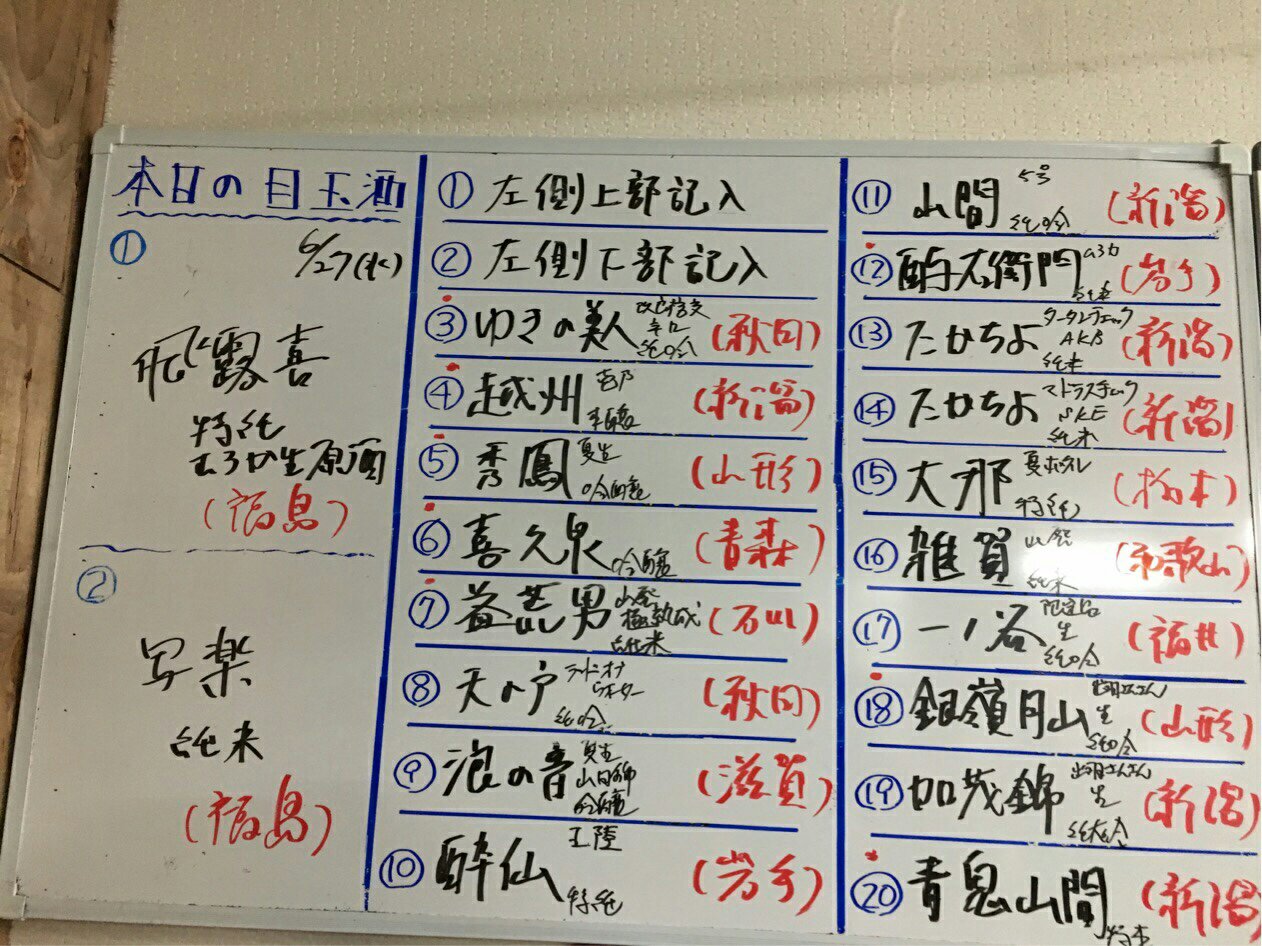 本日の目玉酒
6/27(水)
①
飛露喜
特純
むろか生原酒
(福島)
②
写楽
純米
(福島)
① 左側上部記入
② 左側下部記入
③ ゆきの美人 改良信交 辛口 純吟 (秋田)
④ 越州 (新潟)
⑤ 秀鳳 夏生 吟醸 (山形)
⑥ 喜久泉 吟醸 (青森)
⑦ 益荒男 山廃 極熟成 純米 (石川)
⑧ 天の戸 ランドオブ ウォーター 純吟 (秋田)
⑨ 浪の音 夏生 山田錦 吟醸 (滋賀)
⑩ 酔仙 特純 (岩手)
⑪ 山間 5号 純吟 (新潟)
⑫ 酉与右衛門 純米 (岩手)
⑬ たかちよ タータンチェック AKB 純米 (新潟)
⑭ たかちよ マドラスチェック SKE 純米 (新潟)
⑮ 大那 夏ホタル 特純 (栃木)
⑯ 雑賀 山廃 純米 (和歌山)
⑰ 一ノ谷 限定品 生 純吟 (福井)
⑱ 銀嶺月山 出羽さんさん 生 純吟 (山形)
⑲ 加茂錦 出羽さんさん 生 純大吟 (新潟)
⑳ 青鬼山間 特本 (新潟)